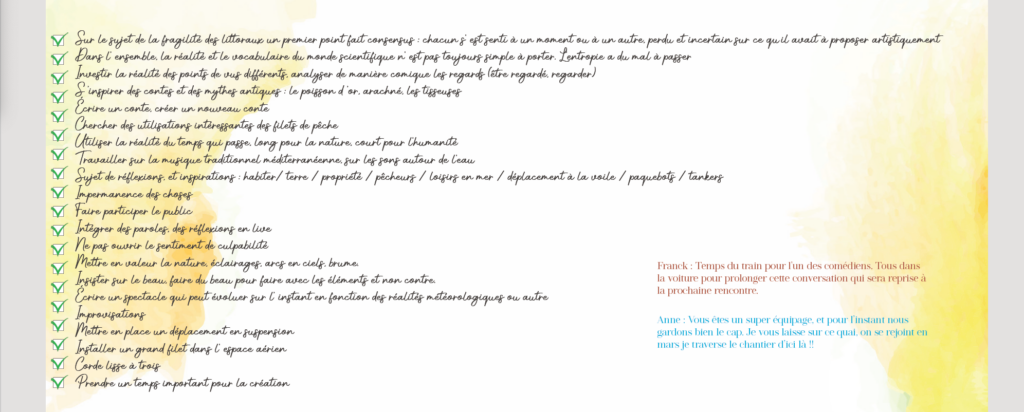 Sur le sujet de la fragilité des littoraux un premier point fait consensus : chacun s'est senti à un moment ou à un autre, perdu et incertain sur ce qu'il avait à proposer artistiquement
Dans l'ensemble, la réalité et le vocabulaire du monde scientifique n'est pas toujours simple à porter. L'entropie a du mal à passer
Investir la réalité des points de vus différents, analyser de manière comique les regards (être regardé, regarder)
S'inspirer des contes et des mythes antiques : le poisson d'or, arachné, les tisseuses
Écrire un conte, créer un nouveau conte
Chercher des utilisations intéressantes des filets de pêche
Utiliser la réalité du temps qui passe, long pour la nature, court pour l'humanité
Travailler sur la musique traditionnel méditerranéenne, sur les sons autour de l'eau
Sujet de réflexions, et inspirations : habiter/ terre / propriété / pêcheurs / loisirs en mer / déplacement à la voile / paquebots / tankers
Impermanence des choses
Faire participer le public
Intégrer des paroles, des réflexions en live
Ne pas ouvrir le sentiment de culpabilité
Mettre en valeur la nature, éclairages, arcs en ciels, brume.
Insister sur le beau, faire du beau pour faire avec les éléments et non contre.
Écrire un spectacle qui peut évoluer sur l'instant en fonction des réalités météorologiques ou autre
Improvisations
Mettre en place un déplacement en suspension
Installer un grand filet dans l'espace aérien
Corde lisse à trois
Prendre un temps important pour la création
Franck : Temps du train pour l'un des comédiens. Tous dans
la voiture pour prolonger cette conversation qui sera reprise à
la prochaine rencontre.
Anne : Vous êtes un super équipage, et pour l'instant nous
gardons bien le cap. Je vous laisse sur ce quai, on se rejoint en
mars je traverse le chantier d'ici là !!